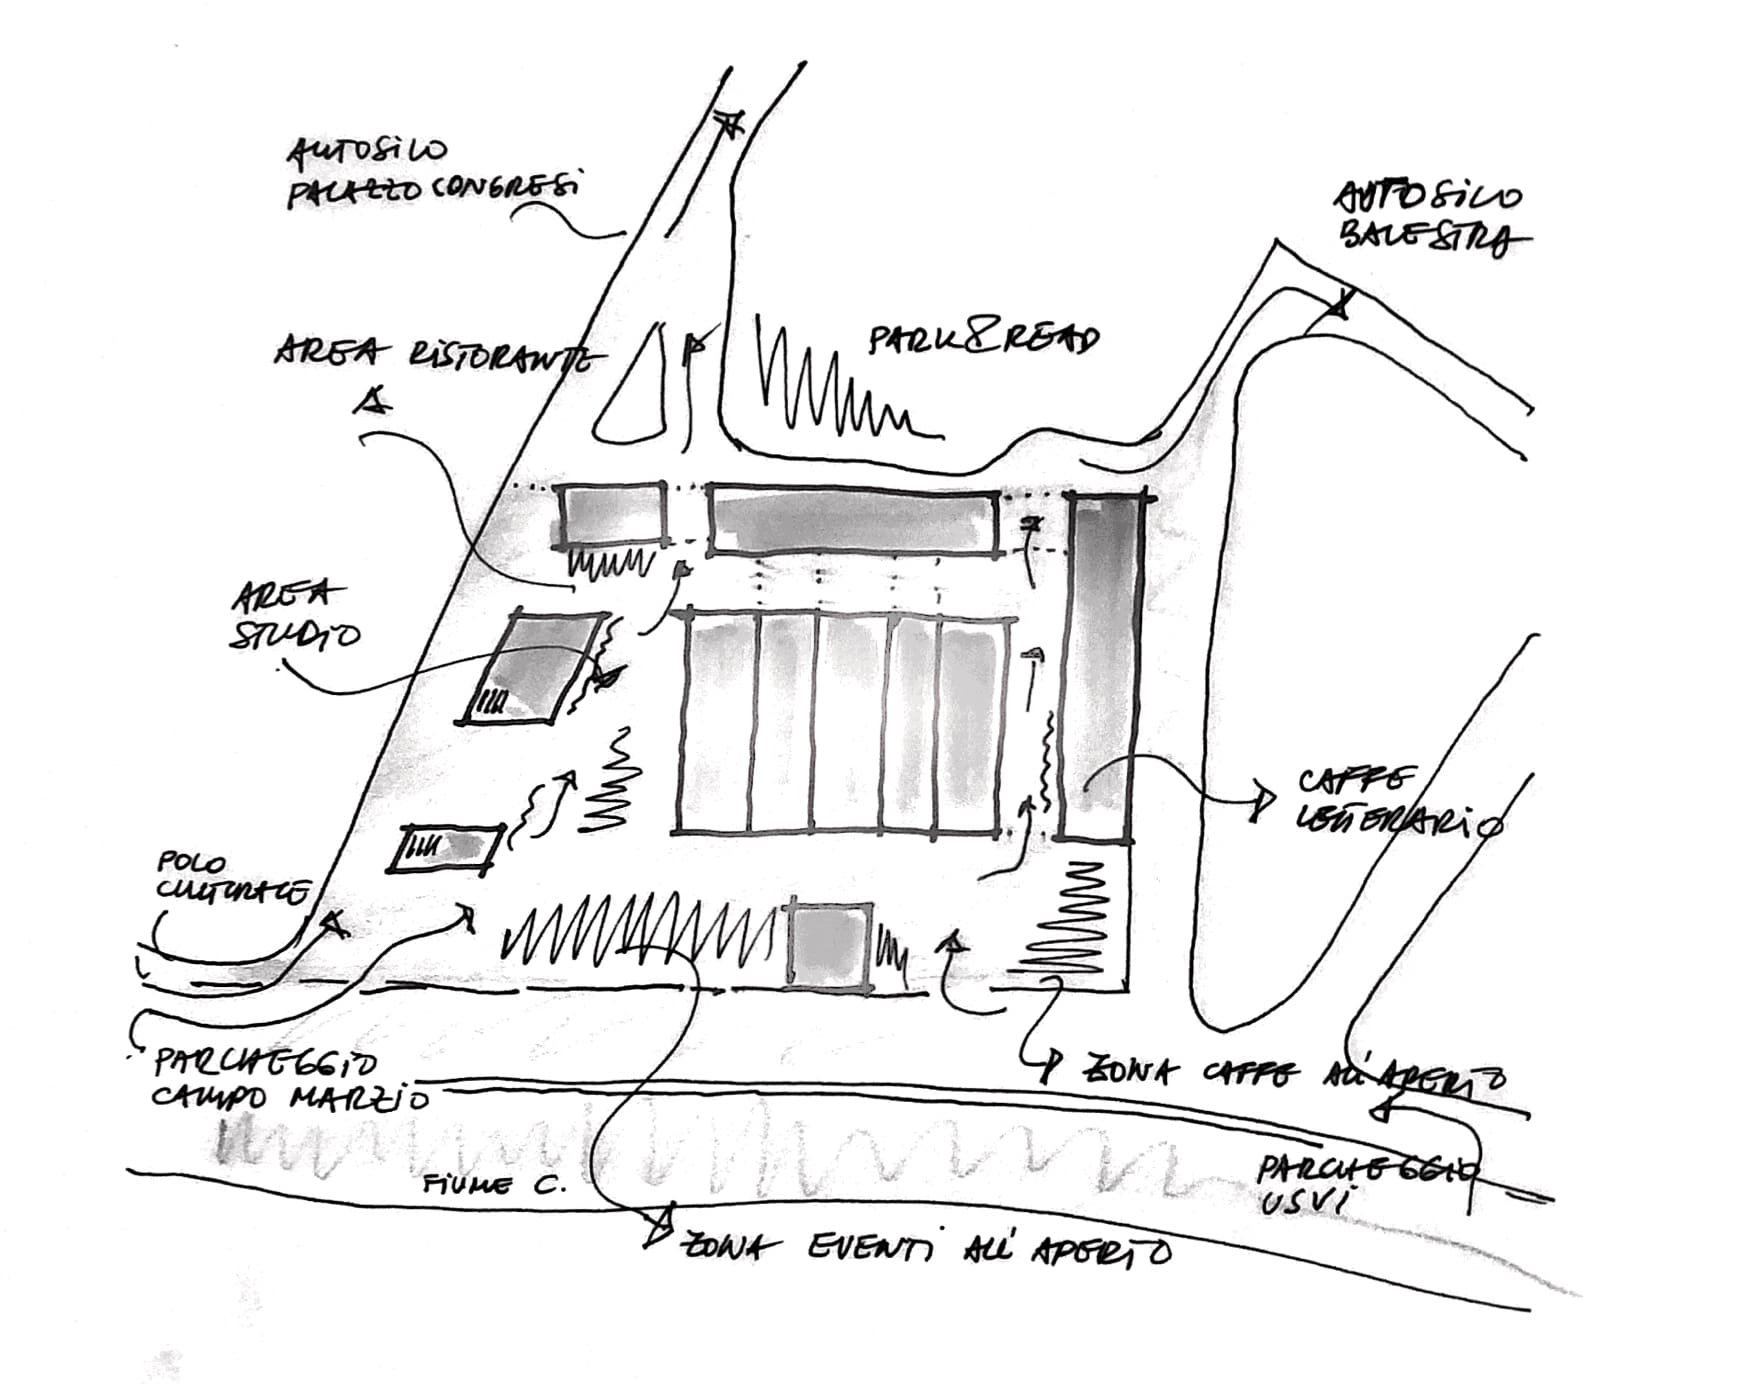 AUTOSILO
PALAZZO CONGRESI
AUTOSILO
BALESTRA
AREA RISTORANTE
PARK&READ
AREA
STUDIO
CAFFE
LETTERARIO
POLO
CULTURALE
PARCHEGGIO
CAMPO MARZIO
ZONA CAFFE ALL'APERTO
FIUME C.
PARCHEGGIO
USVI
ZONA EVENTI ALL'APERTO